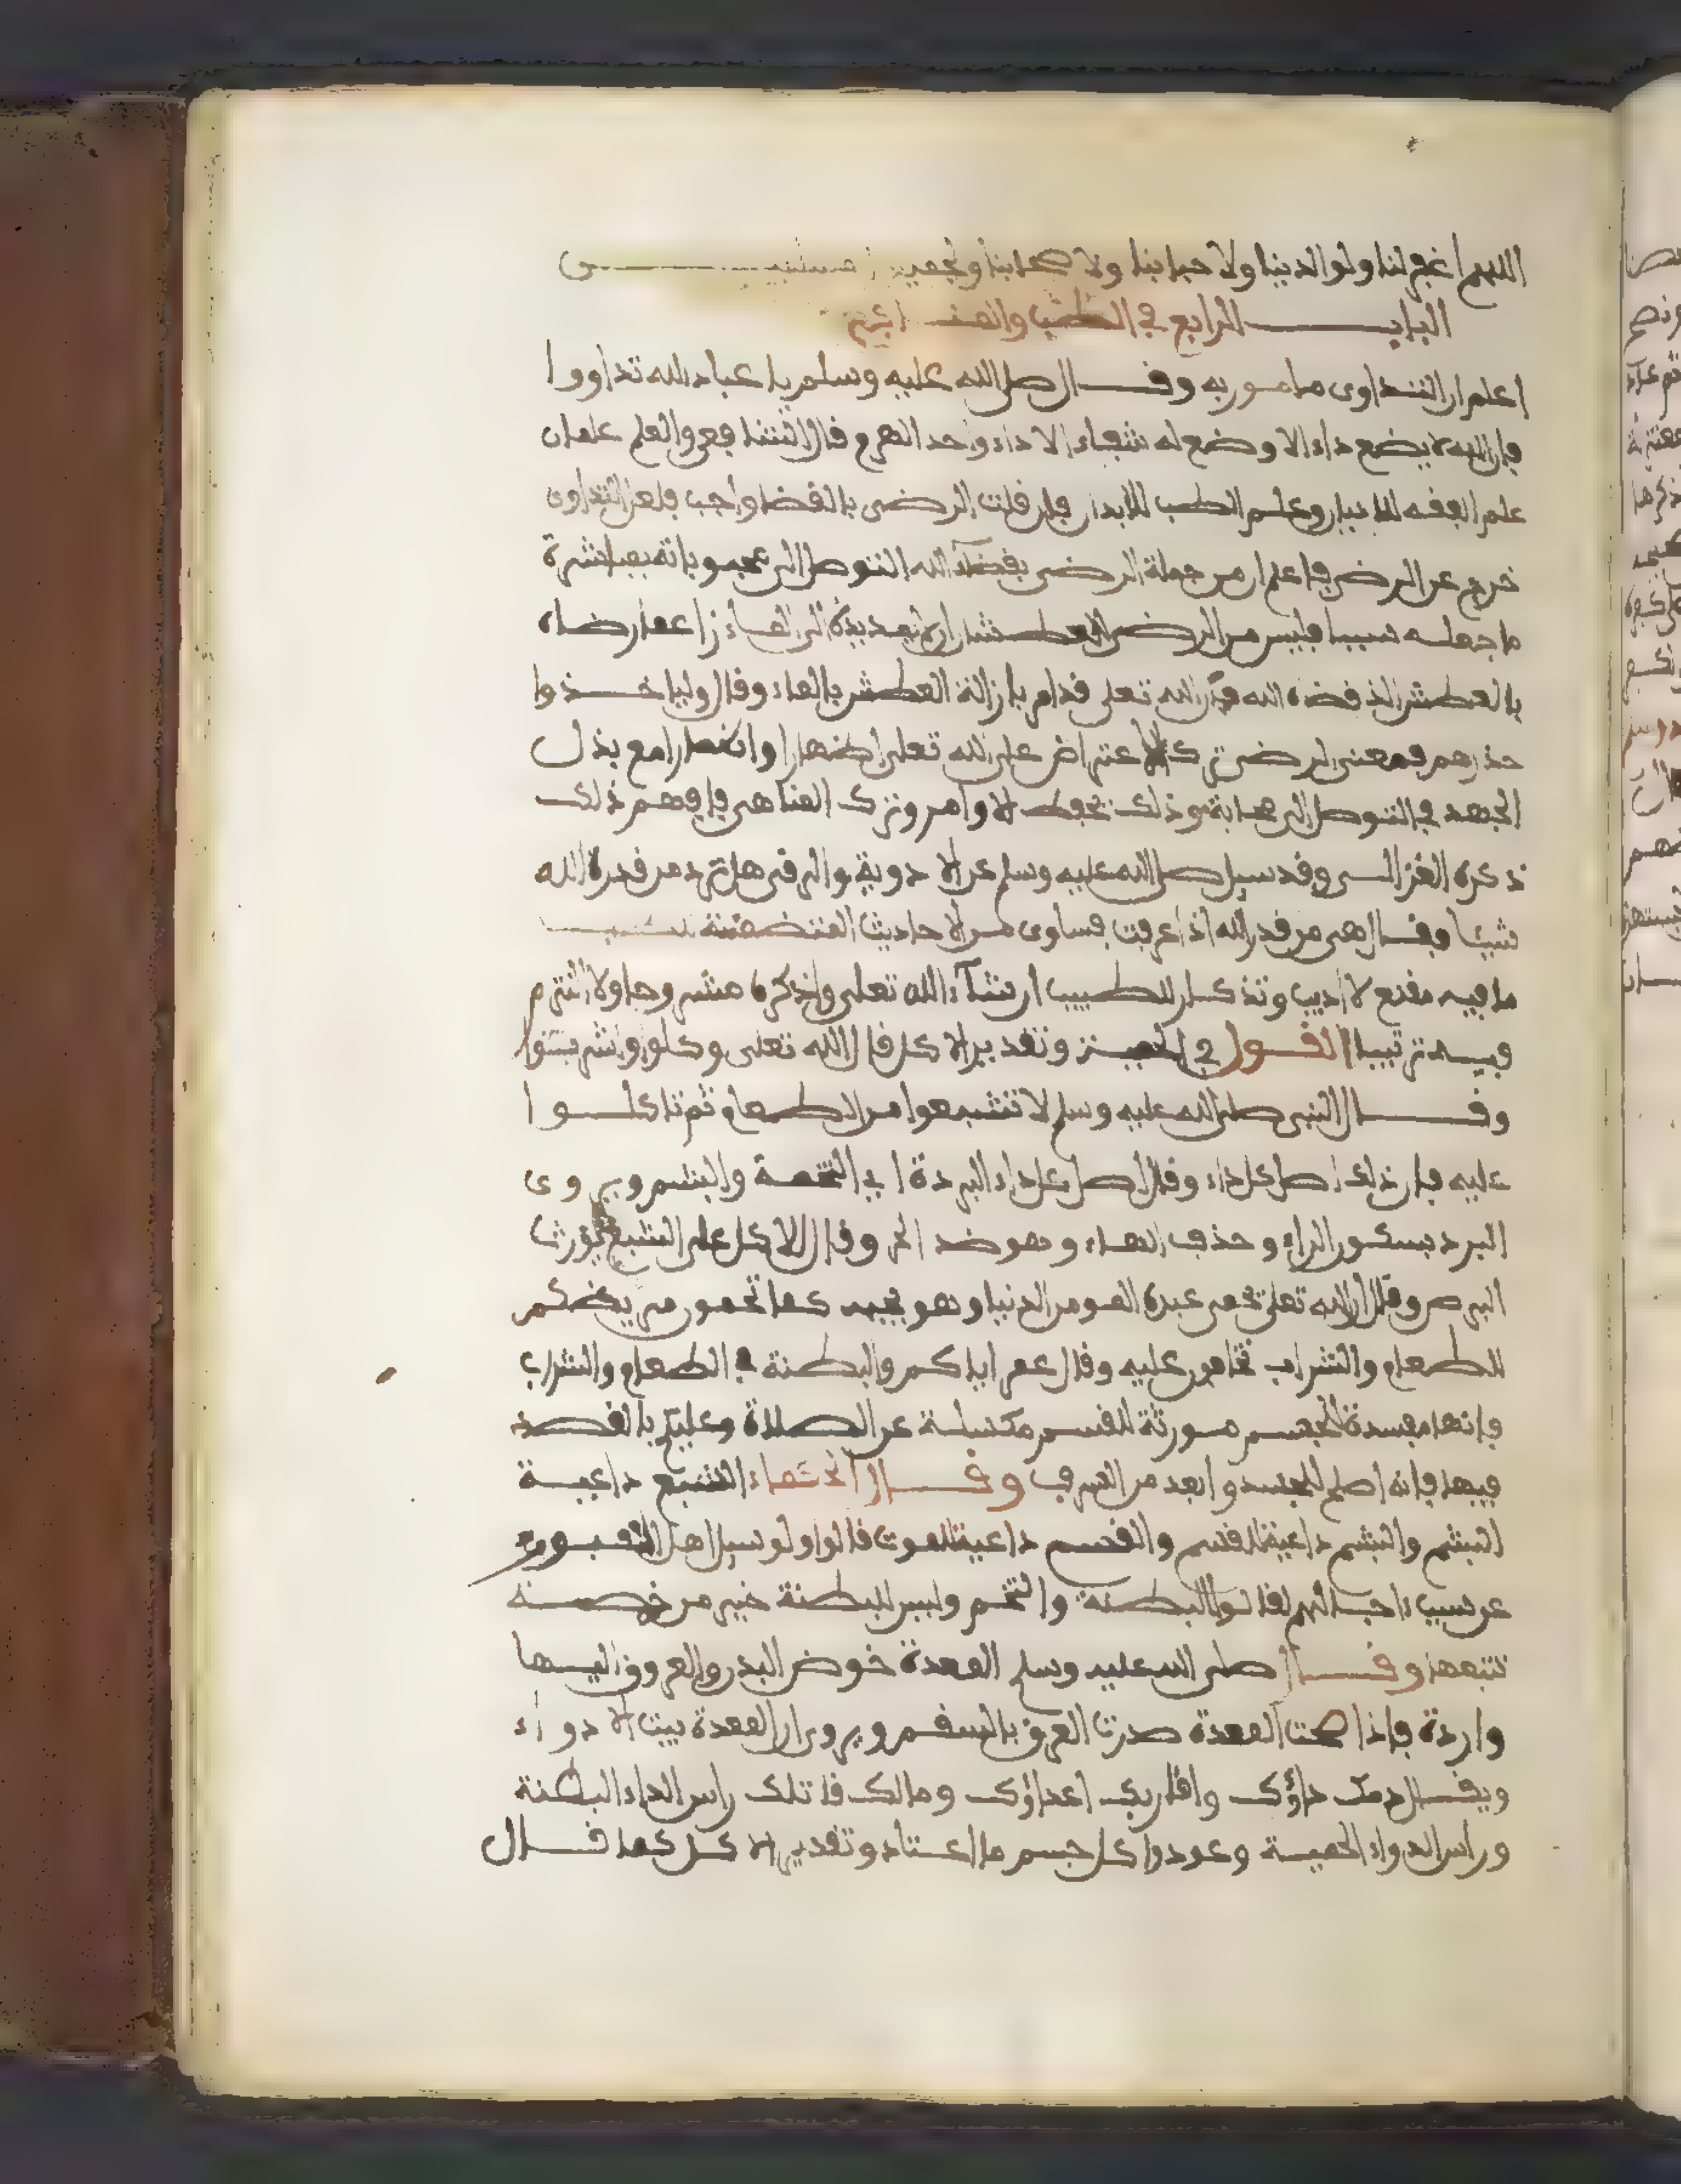 اللهم اغفر لنا ولوالدينا ولاحبابنا ولاصحابنا ولجميع المسلمين
الباب الرابع في الطب والمنـــافع
اعلم ان التداوى مامور به وقـــال صلى الله عليه وسلم يا عباد الله تداووا
فان الله لم يضع داء الا وضع له شفاء الا داء واحد الهرم قال الشافعى والعلم علمان
علم الفقه للاديان وعلم الطب للابدان فان قلت الرضى بالقضا واجب فلعل التداوى
خرج عن الرضى فاعلم ان من جملة الرضى بقضاء الله التوصل الى محبوباته بمباشرة
ما جعله سببا فليس من الرضى للعطشان ان لا يمد يده الى الماء زاعما رضاه
بالعطش الذ قضاه الله فان الله تعلى قد امر بازالة العطش بالماء وقال ولياخـــذوا
حذرهم فمعنى الرضى ترك الاعتراض على الله تعلى اظهارا واضمارا مع بذل
الجهد في التوصل الى محابه وذلك بحفظ الاوامر وترك المناهى فافهم ذلك
ذكره الغزالـــى وقد سيل صلى الله عليه وسلم عن الادوية والرقى هل ترد من قدرة الله
شيئا فقـــال هى من قدر الله اذا عرفت فساوى من الاحاديث المتضمنة
ما فيه مقنع لاديب وتذكار للطبيب ان شاء الله تعلى واذكره منشروحا ولا التزم
فيـــه ترتيبا القـــول في الحميـــة وتقدير الاكل قال الله تعلى وكلوا واشربوا
وقـــــال النبى صلى الله عليه وسلم لا تشبعوا من الطعام ثم تاكلـــوا
عليه فان ذلك اصل كل داء وقال اصل كل داء البردة اى التخمة والبشم ويروى
البرد بسكون الراء وحذف الهاء وهو ضد الحر وقال الاكل على الشبع يورث
البرص وقال ان الله تعلى يحمى عبده المومن الدنيا وهو يحبه كما تحمون مريضكم
للطعام والشراب تخافون عليه وقال عمر اياكم والبطنة في الطعام والشراب
فانها مفسدة للجسم مورثة للقسم مكسلة عن الصلاة وعليكم بالقصد
فيهما فانه اصلح للجسد وابعد من السرف وقـــال الحكماء الشبع داعيـــة
البشم والبشم داعية للقسم والقسم داعية للموت قالوا ولو سيل اهل القبـــور
عن سبب ءاجـــالهم لقالوا البطنة والتخم وليس للبطنة خير من خمصـــة
تتبعها وقـــال صلى الله عليه وسلم المعدة حوض البدن والعروق اليـــها
واردة فاذا صحت المعدة صدرت العروق بالسقم ويروى ان المعدة بيت الادواء
ويقـــال دمك داؤك واقاربك اعداؤك ومالك قاتلك راس الداء البطنة
وراس الدواء الحميـــة وعودوا كل جسم ما اعـــتاد وتقدير الاكـــل كما قـــال